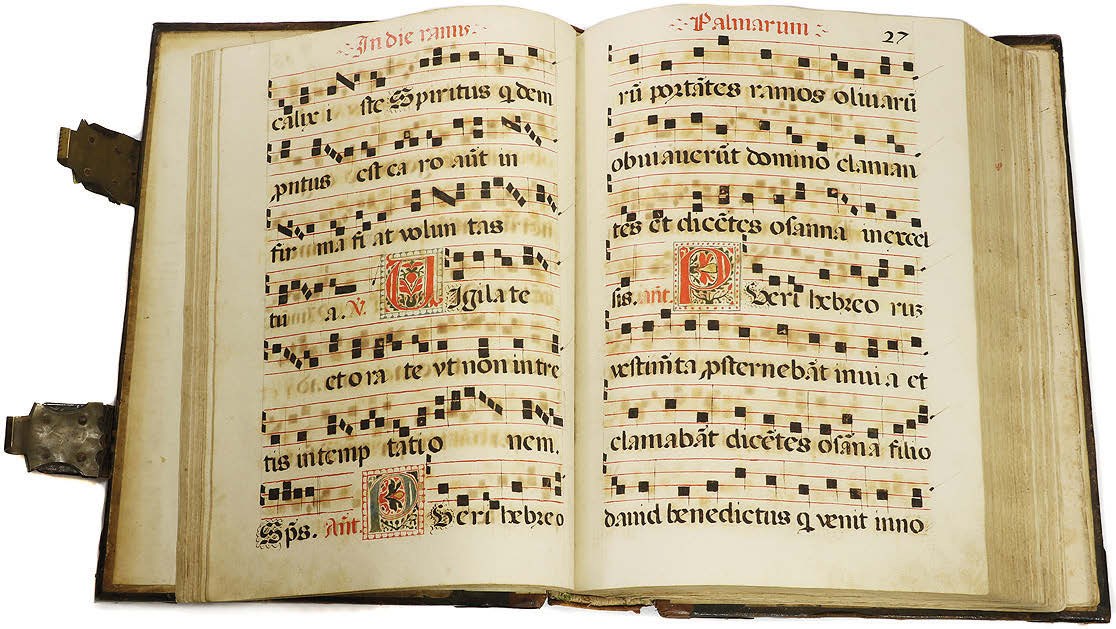 In die ramis
calix i ste Spiritus q̃dem
ꝓntus est ca ro aũt in
fir ma fi at volun tas
tu a. V. UIgila te
et o ra te vt non in tre
tis in temp tati o nem.
Sp̃s. Añt. PUeri hebreo
Palmarum 27
rũ portãtes ramos oliuarũ
obuiauerũt domino claman
tes et dicẽtes osanna in excel
sis. añt. PUeri hebreo rũ
vestim̃ta ꝓsternebãt in uia et
clamabãt dicẽtes osãna filio
dauid benedictus q̃ venit in no